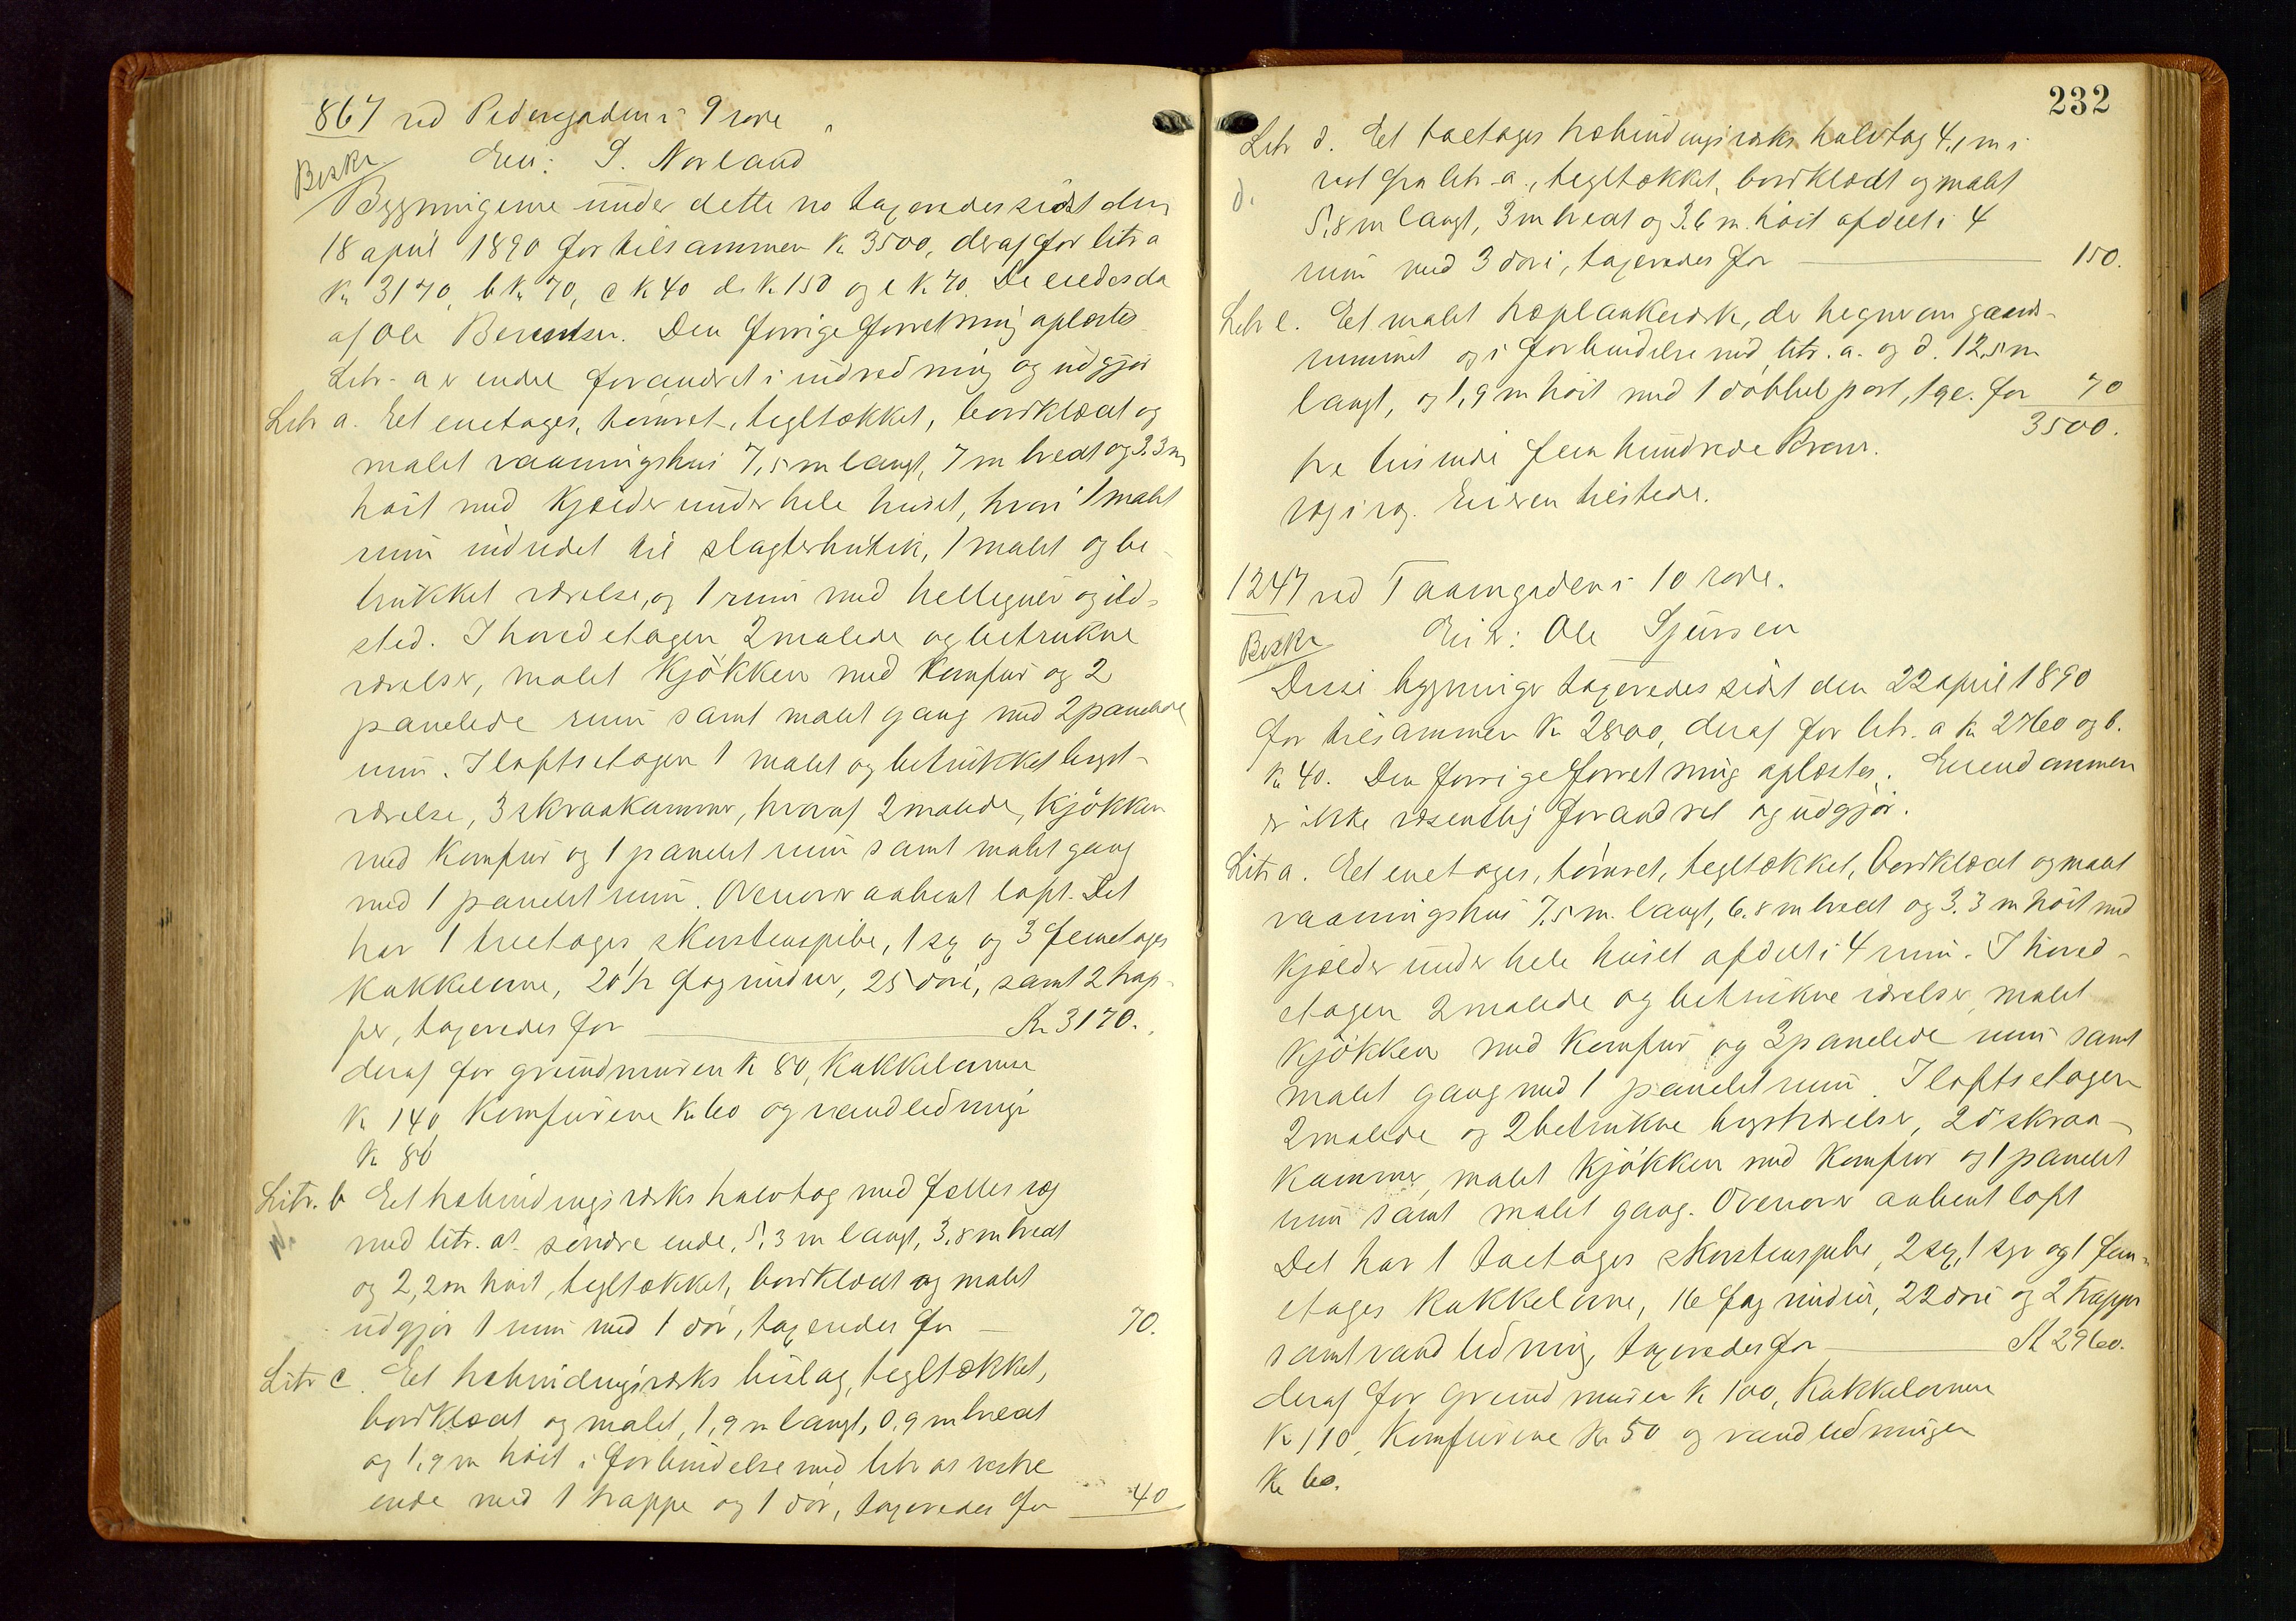 867 ved Pedersgaden i 9 rode
Beskr Eier: S. Norland
Bygningerne under dette no taxeredes sidst den
18 april 1890 for tilsammen K 3500, deraf for litr a
Kr 3170, b K 70, c K 40 d. K 150 og e K 70. De eiedes da
af Ole Berentsen. Den forrige forretning oplæstes.
Litr. a er endel forandret i indredning og udgjør
Litr a. Et enetages, tømret, tegltækket, bordklædt og
malet vaaningshus 7,5 m langt, 7 m bredt og 3.3 m
høit med kjælder under hele huset, hvori 1 malet
rum indredet til slagterbutik, 1 malet og be-
trukket værelse, og 1 rum med hellegulv og ild-
sted. I hovedetagen 2 malede og betrukne
værelser, malet kjøkken med komfur og 2
panelede rum samt malet gang med 2 panelede
rum. I loftsetagen 1 malet og betrukket kvist-
værelse, 3 skraakammer, hvoraf 2 malede, kjøkken
med komfur og 1 panelet rum samt malet gang
med 1 panelet rum. Ovenover aabent loft. Det
har 1 treetages skorstenspibe, 1 sx og 3 femetages
kakkelovne, 20 1/2 fag vinduer, 25 døre, samt 2 trap-
per, taxeredes for Kr 3170.
deraf for grundmuren K 80, kakkelovnene
K 140 komfurene K 60 og vandledninge
K 80
Litr. b Et halvindingsværks halvtag med fælles væg
med litr. as søndre ende, 5,3 m langt, 3,8 m bredt
og 2,2 m høit, tegltækket, bordklædt og malet
udgjør 1 rum med 1 dør, taxeredes for 70.
Litr c. Et halvindingsværks bislag, tegltækket,
bordklædt og malet, 1,9 m langt, 0,9 m bredt
og 1,9 m høit i forbindelse med litr as vestre
ende med 1 trappe og 1 dør, taxeredes for 40
232
Litr d. Et toetages halvindingsværks halvtag 4,1 m i
d. vest fra litr a., tegltækket, bordklædt og malet
5,8 m langt, 3 m bredt og 3.6 m. høit afdelt i 4
rum med 3 døre, taxeredes for 150.
Litr e. Et malet plankeværk, der hegner om gaards-
rummet og i forbindelse med litr. a. og d. 12,5 m
langt, og 1,9 m høit med 1 dobbel port, for 70
3500.
tre tusinde fem hundrede Kroner.
Eieren tilstede.
1247 ved Taarngaden i 10 rode.
Beskr Eier: Ole Sjursen
Disse bygninger taxeredes sidst den 22 april 1890
for tilsammen K 2800, deraf for litr. a K 2760 og b.
K 40. Den forrige forretning oplæstes. Eiendommen
er ikke væsentlig forandret og udgjør.
Litr a. Et enetages, tømret, tegltækket, bordklædt og malet
vaaningshus 7,5 m. langt, 6.8 m bredt og 3.3 m høit med
kjælder under hele huset afdelt i 4 rum. I hoved-
etagen 2 malede og betrukne værelser, malet
kjøkken med komfur og 3 panelede rum samt
malet gang med 1 panelet rum. I loftsetagen
2 malede og 2 betrukne kvistværelser, 2 do skraa-
kammer, malet kjøkken med komfur og 1 panelet
rum samt malet gang. Ovenover aabent loft
Det har 1 toetages skorstenspibe, 2 sx, 1 syv og 1 fem-
etages kakkelovne, 16 fag vinduer, 22 døre og 2 trapper
samt vandledning, taxeredes for K 2960.
deraf for grundmuren K 100, kakkelovnene
K 110, komfurene K 50 og vandledningen
K 60.